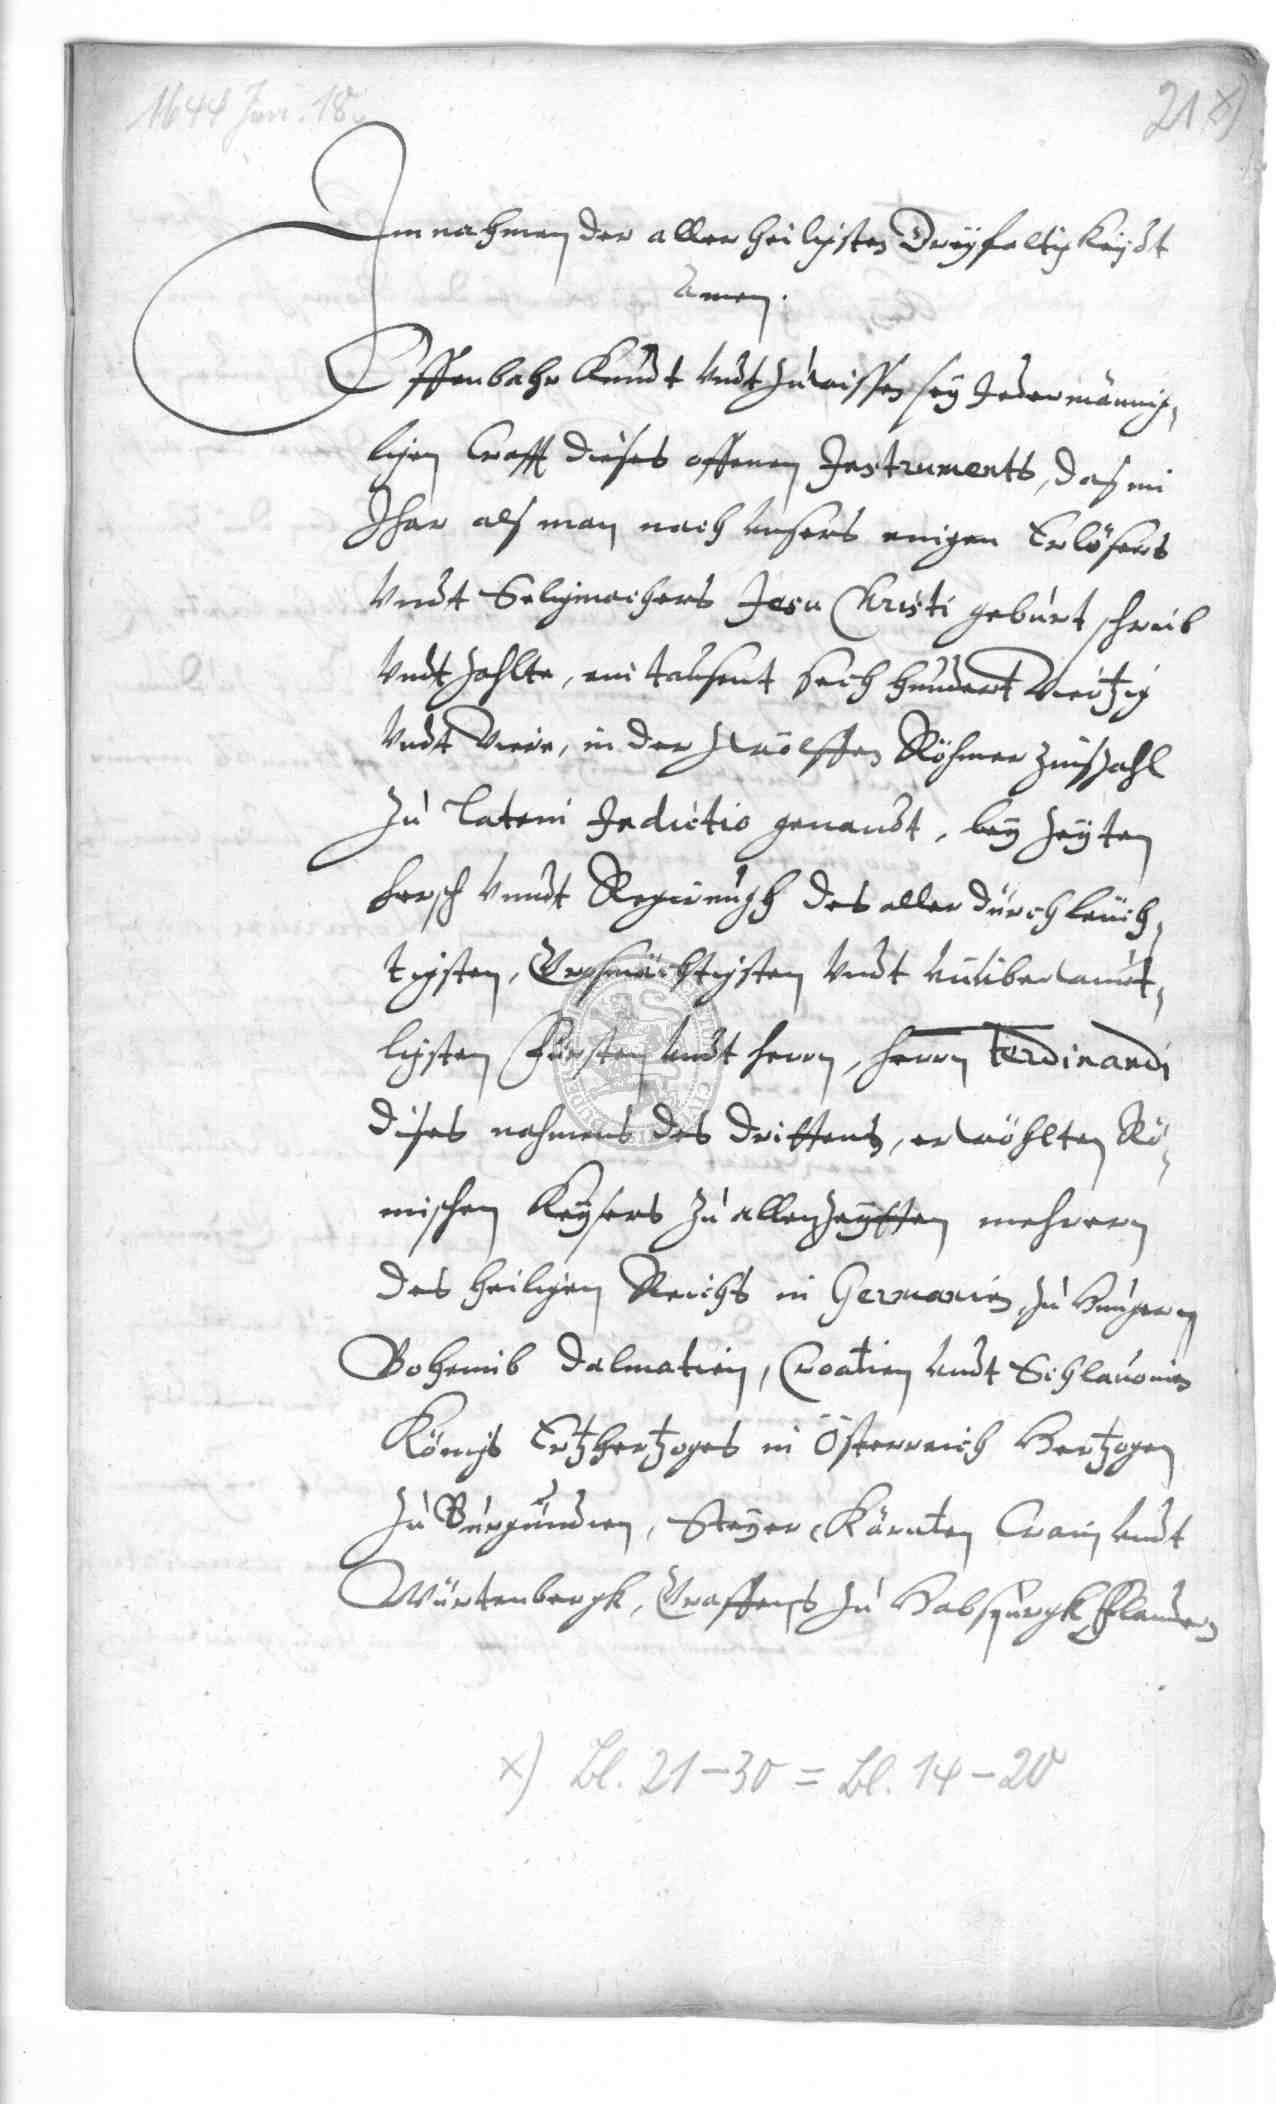 1644 Juni. 18.
21 x)
Im nahmen der aller heiligsten Dreyfaltigkeydt
Amen.
Offenbahr Kundt vndt zuwissen sey Jedermännig,
lichen Crafft dieses offenen Instruments, daß im
Jhar alß man nach vnsers einigen Erlösers
vndt Seligmachers Jesu Christi geburt schreib
vndt zahlte, ein tausent sechhundert Viertzig
vndt Viere, in der zwölfften Röhmer Zinßzahl
zu Latein Indictio genandt, bey Zeyten
hersch vnndt Regirungh des aller durchleuch,
tigsten, Grosmächtigsten vndt vnüberwindt,
lichsten Fürsten vndt herrn, herrn Ferdinandi
dises nahmens des drittens, erwöhlten Rö,
mischen Keysers zu allenzeytten mehrern
des heiligen Reichs in Germanien, zu Hungern
Bohemib Dalmatien, Croatien vndt Schlavonien
Königs Ertzhertzoges in Österreich Hertzogen
zu Burgundien, Steyer, Kärnten Crain vndt
Würtenbergk, Graffens zu Habspurgk, Flandern
x) Bl. 21-30 = Bl. 14-20